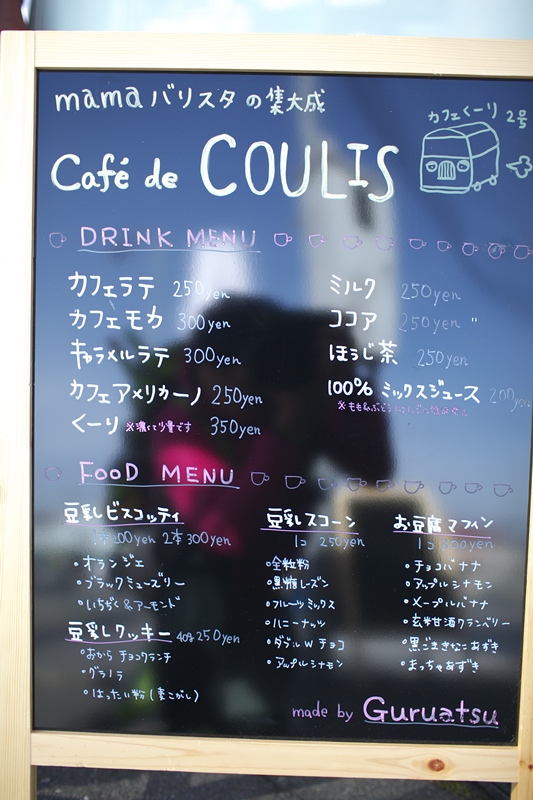 mama バリスタ の 集大成
カフェくーり 2号
Café de COULIS
DRINK MENU
カフェラテ 250yen
カフェモカ 300yen
キャラメルラテ 300yen
カフェアメリカーノ 250yen
くーり ※濃くて少量です 350yen
ミルク 250yen
ココア 250yen "
ほうじ茶 250yen
100% ミックスジュース 200yen
FOOD MENU
豆乳ビスコッティ
1本100yen 2本300yen
・オランジェ
・ブラックミューズリー
・いちぢく&アーモンド
豆乳クッキー 40g 250yen
・おから チョコクランチ
・グラノラ
・はったい粉(麦こがし)
豆乳スコーン
1コ 250yen
・全粒粉
・黒糖レーズン
・フルーツミックス
・ハニーナッツ
・ダブルW チョコ
・アップルシナモン
お豆腐マフィン
1コ 300yen
・チョコバナナ
・アップルシナモン
・メープルバナナ
・玄米甘酒クランベリー
・黒ごまきなこあずき
・まっちゃあずき
made by Guruatsu